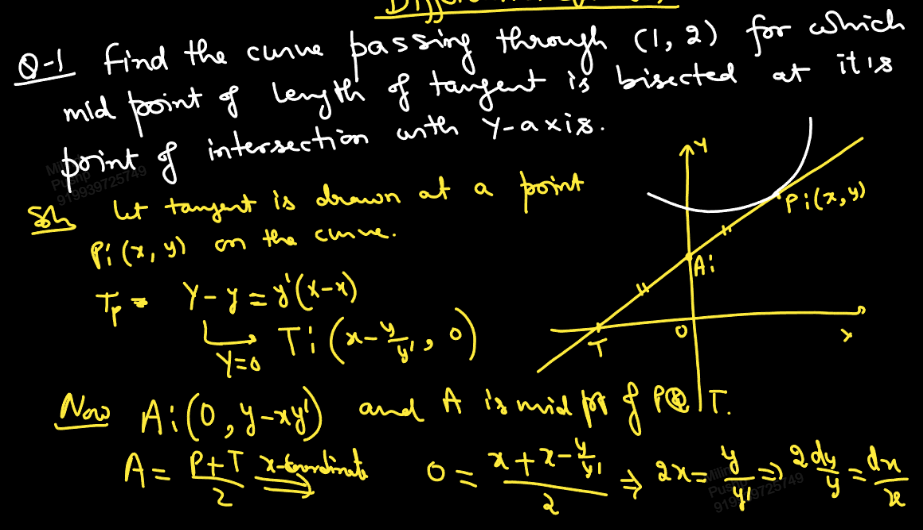 Q-1 Find the curve passing through (1, 2) for which
mid point of length of tangent is bisected at it is
point of intersection with Y-axis.
Soln Let tangent is drawn at a point
P: (x, y) on the curve.
T_P = Y - y = y'(X - x)
Y=0 T: (x - y/y', 0)
Now A: (0, y - xy') and A is mid pt of P T.
A = (P+T)/2 x-coordinate 0 = (x + x - y/y')/2 ⇒ 2x = y/y' ⇒ 2dy/y = dx/x
Y
P: (x, y)
A:
T
O
x